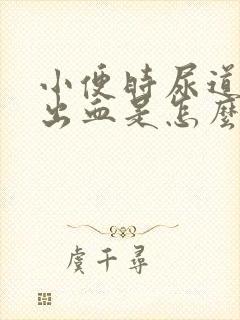 小便時尿道
出血是怎麼
虞千尋